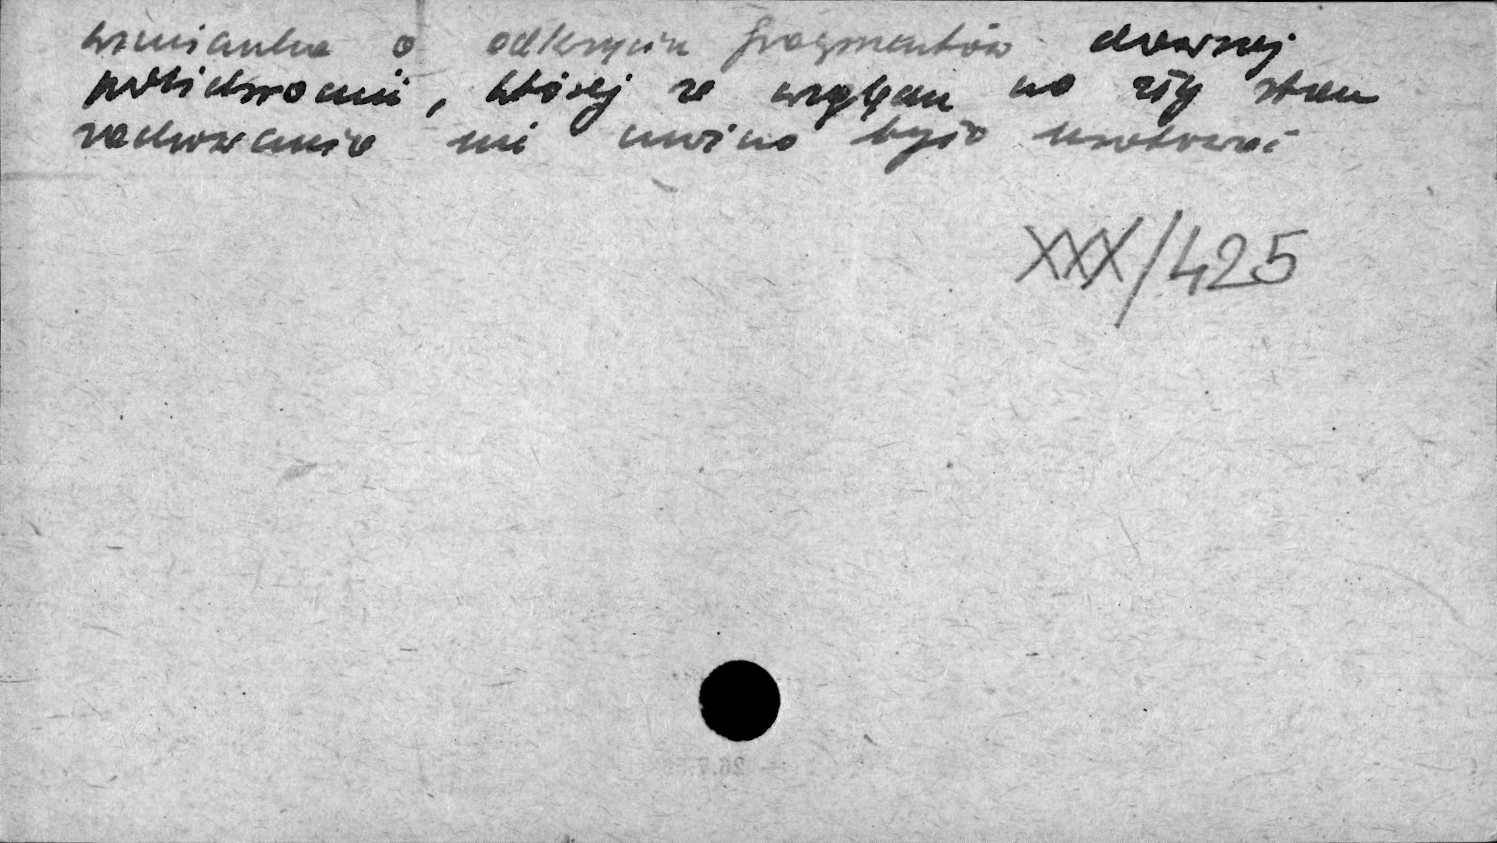 wzmianka o odkryciu fragmentów dawnej
polichromii, której ze względu na zły stan
zachowania nie można było uratować
XXX/425